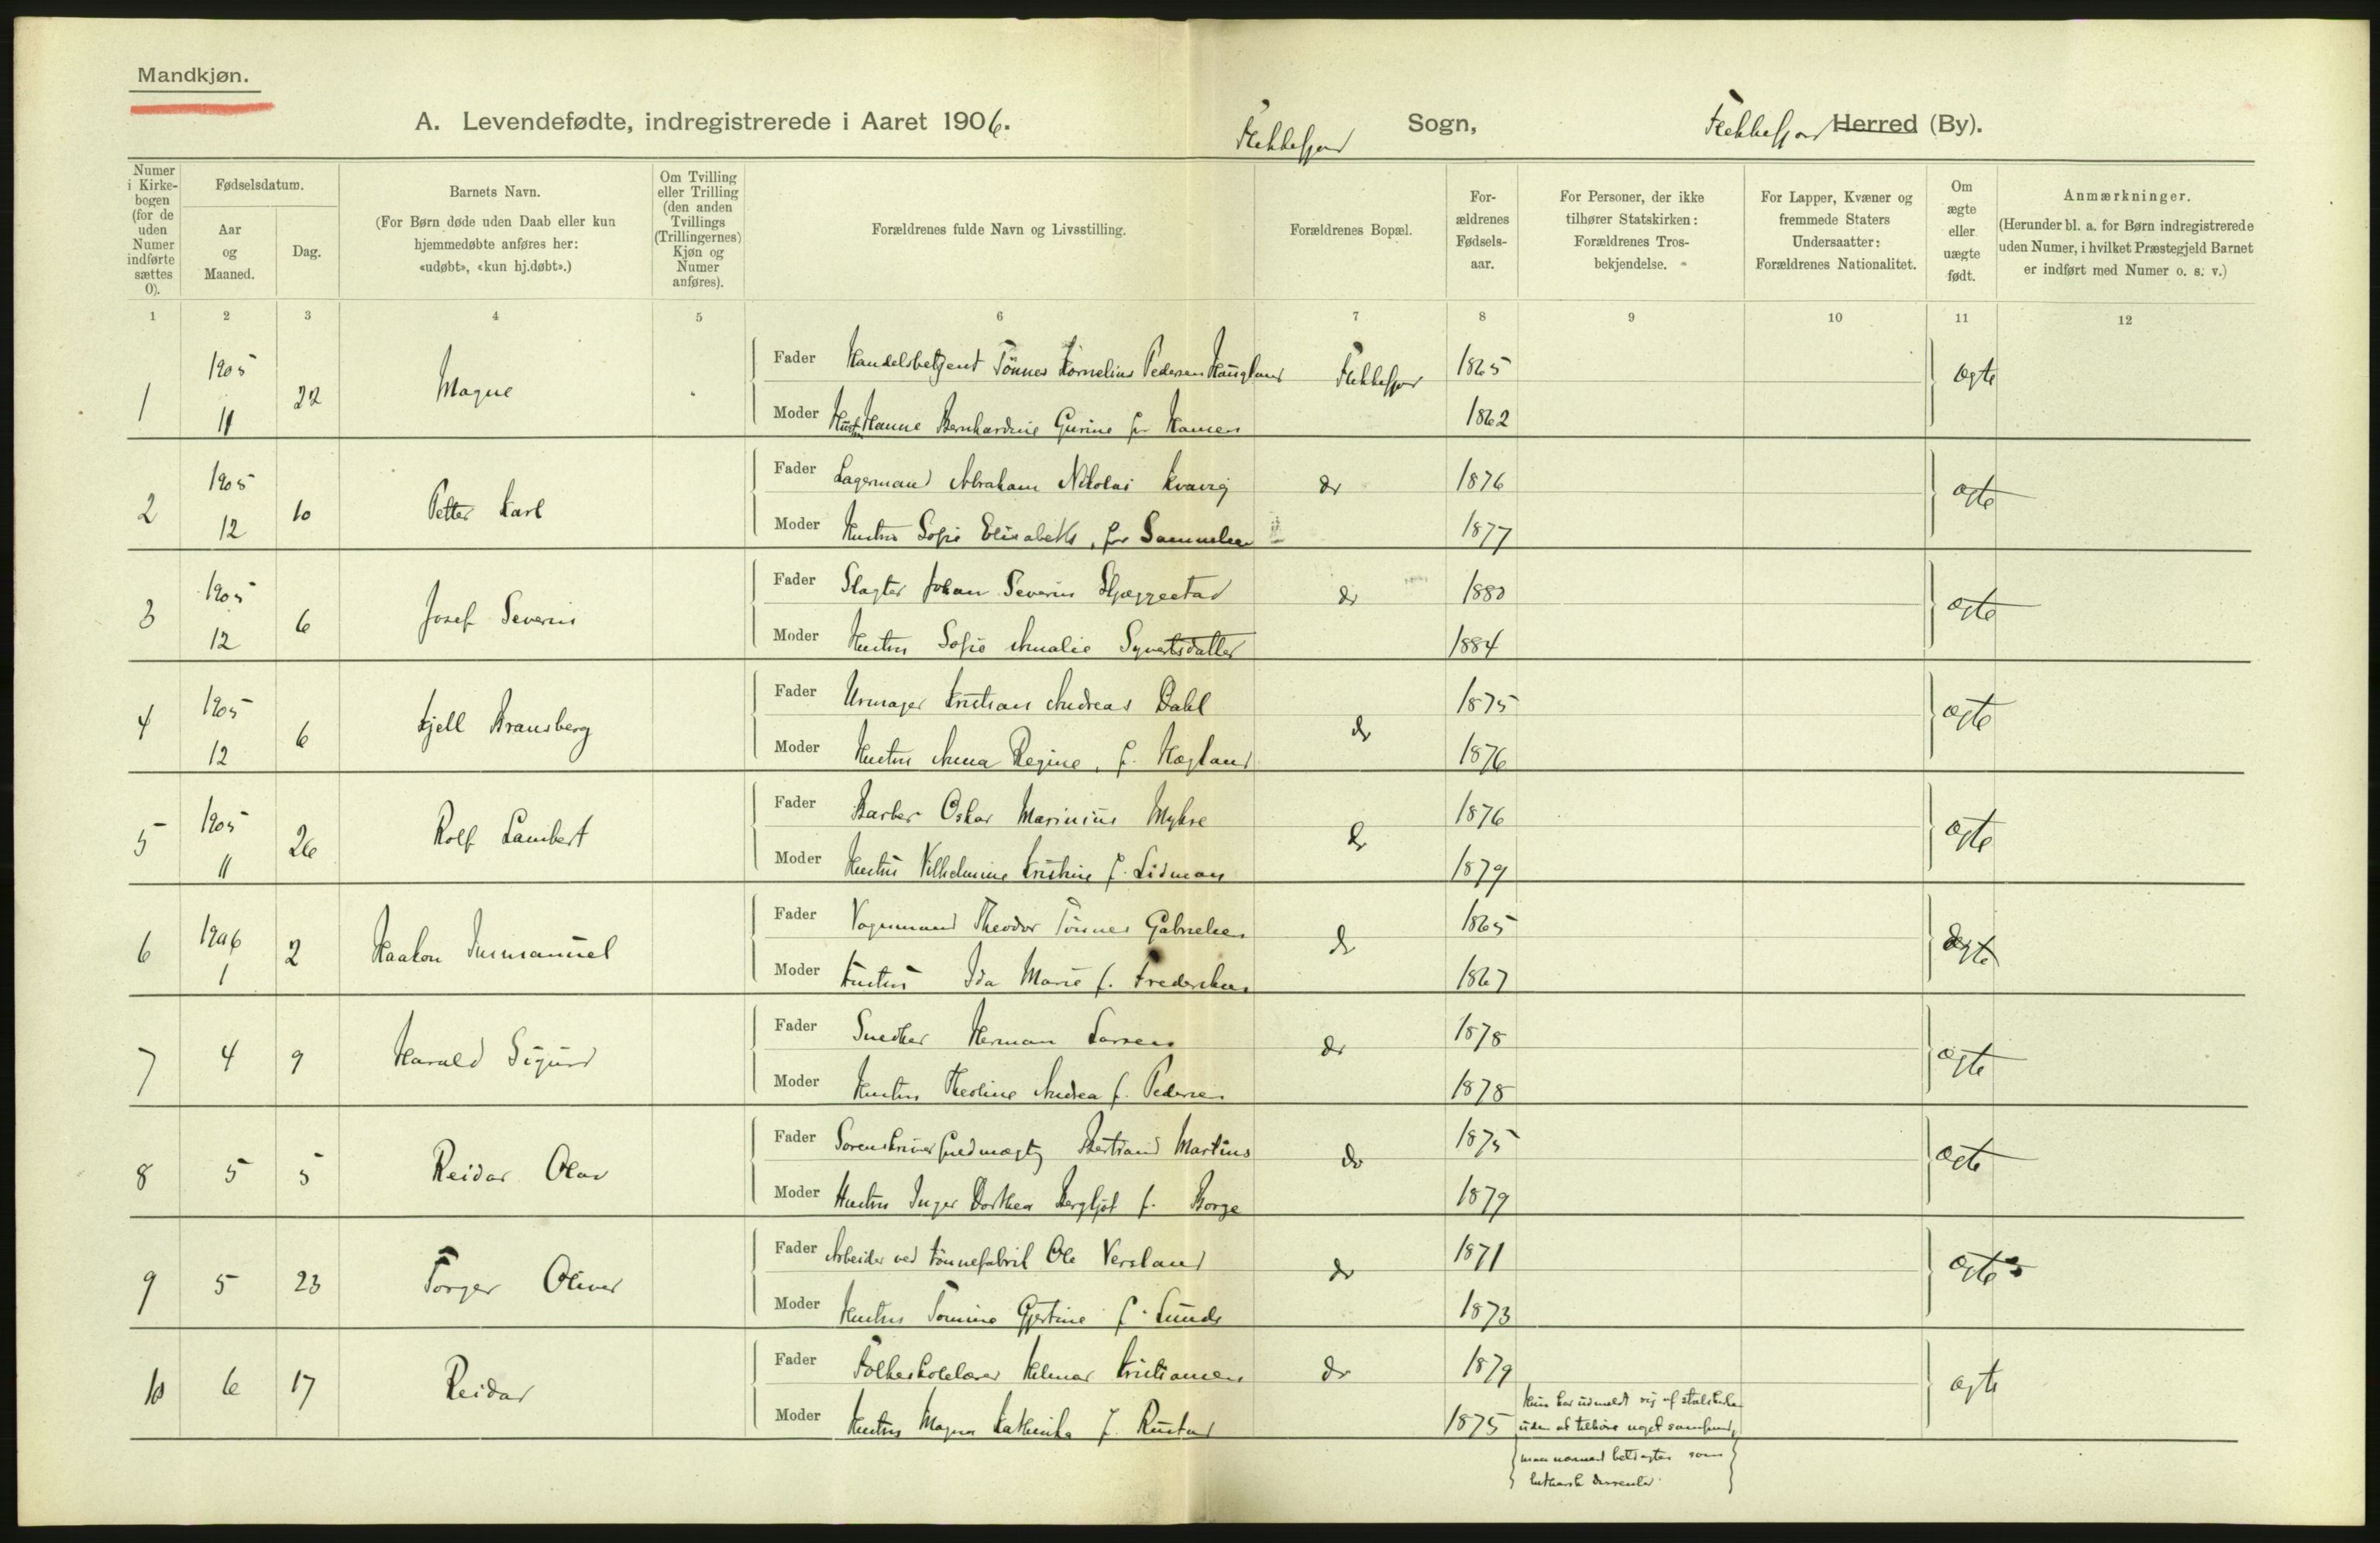 Mandkjøn.
A. Levendefødte, indregistrerede i Aaret 1906. Flekkefjord Sogn, Flekkefjord Herred (By).
Numer i Kirkebogen (for de uden Numer indførte sættes 0).
Fødselsdatum.
Aar og Maaned.
Dag.
Barnets Navn.
(For Børn døde uden Daab eller kun hjemmedøbte anføres her: «udøbt», «kun hj.døbt».)
Om Tvilling eller Trilling (den anden Tvillings (Trillingernes) Kjøn og Numer anføres).
Forældrenes fulde Navn og Livsstilling.
Forældrenes Bopæl.
Forældrenes Fødselsaar.
For Personer, der ikke tilhører Statskirken: Forældrenes Trosbekjendelse.
For Lapper, Kvæner og fremmede Staters Undersaatter: Forældrenes Nationalitet.
Om ægte eller uægte født.
Anmærkninger.
(Herunder bl. a. for Børn indregistrerede uden Numer, i hvilket Præstegjeld Barnet er indført med Numer o. s. v.)
1 2 3 4 5 6 7 8 9 10 11 12
1 1905 11 22 Magne Fader Handelsbetjent Tönnes Kornelius Pedersen Haugland Flekkefjord 1865 ægte
Moder Hustru Hanne Bernhardine Gurine f. Hansen 1862
2 1905 12 10 Petter Karl Fader Lagermand Abraham Nikolai Kvavig do 1876 ægte
Moder Hustru Sofie Elisabeth, f. Samuelsen 1877
3 1905 12 6 Josef Severin Fader Slagter Johan Severin Skjæggestad do 1880 ægte
Moder Hustru Sofie Amalie Syvertsdatter 1884
4 1905 12 6 Kjell Bransberg Fader Urmager Kristian Andreas Dahl do 1875 ægte
Moder Hustru Anna Regine, f. Hægland 1876
5 1905 11 26 Rolf Lambert Fader Barber Oskar Marinius Myhre do 1876 ægte
Moder Hustru Vilhelmine Kristine f. Lidman 1879
6 1906 1 2 Haakon Immanuel Fader Vognmand Theodor Tönnes Gabrielsen do 1865 ægte
Moder Hustru Ida Marie f. Fredriksen 1867
7 4 9 Harald Sigurd Fader Snedker Herman Larsen do 1878 ægte
Moder Hustru Theoline Andrea f. Pedersen 1878
8 5 5 Reidar Olav Fader Sorenskriverfuldmægtig Bertrand Martins do 1875 ægte
Moder Hustru Inger Dorthea Bergljot f. Borge 1879
9 5 23 Torger Oliver Fader Arbeider ved tönnefabrik Ole Versland do 1871 ægte
Moder Hustru Tomine Gjertine f. Lunde 1873
10 6 17 Reidar Fader Folkeskolelærer Helmer Kristiansen do 1879 ægte
Moder Hustru Magna Kathinka f. Rustad 1875
Hun har udmeldt sig af statskirken
uden at tilhøre noget samfund,
maa nærmest betragtes som
luthersk dissenter.